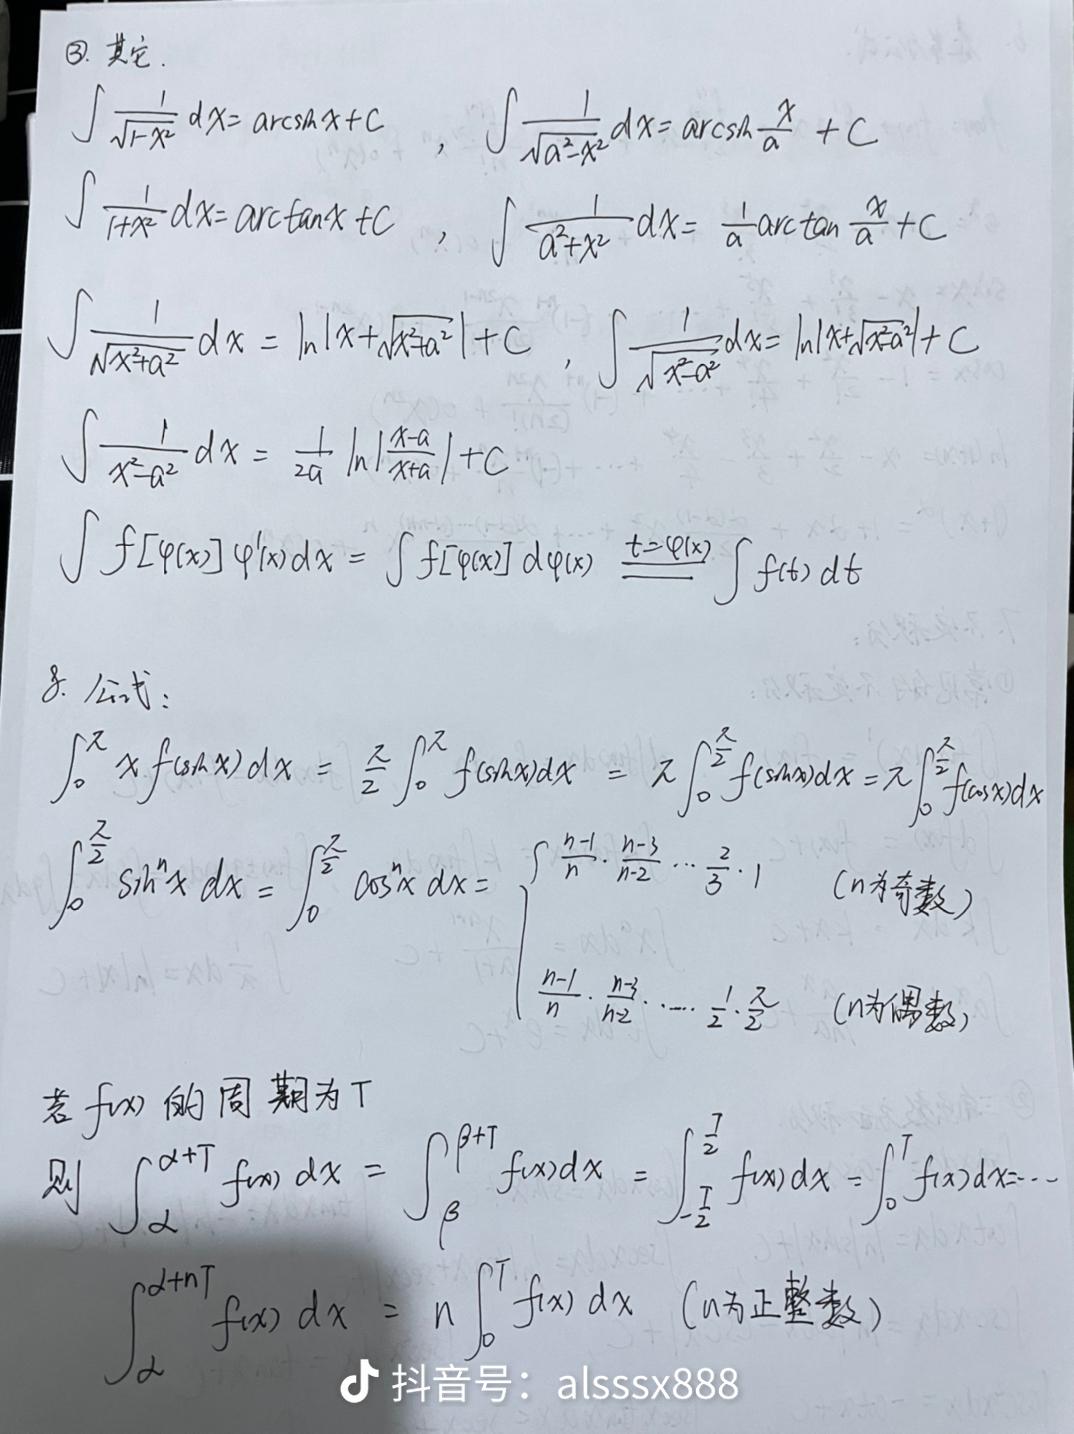 ③. 其它.
∫ 1/√(1-x²) dx = arcsin x + C , ∫ 1/√(a²-x²) dx = arcsin x/a + C
∫ 1/(1+x²) dx = arctan x + C , ∫ 1/(a²+x²) dx = 1/a arctan x/a + C
∫ 1/√(x²+a²) dx = ln|x+√(x²+a²)| + C , ∫ 1/√(x²-a²) dx = ln|x+√(x²-a²)| + C
∫ 1/(x²-a²) dx = 1/(2a) ln|(x-a)/(x+a)| + C
∫ f[φ(x)] φ'(x) dx = ∫ f[φ(x)] dφ(x) t=φ(x) ∫ f(t) dt
8. 公式:
∫₀^π x f(sin x) dx = π/2 ∫₀^π f(sin x) dx = π ∫₀^(π/2) f(sin x) dx = π ∫₀^(π/2) f(cos x) dx
∫₀^(π/2) sinⁿx dx = ∫₀^(π/2) cosⁿx dx = { (n-1)/n · (n-3)/(n-2) ··· 2/3 · 1 (n为奇数)
(n-1)/n · (n-3)/(n-2) ····· 1/2 · π/2 (n为偶数)
若 f(x) 的周期为T
则 ∫_α^(α+T) f(x) dx = ∫_β^(β+T) f(x) dx = ∫_(-T/2)^(T/2) f(x) dx = ∫₀^T f(x) dx = ···
∫_α^(α+nT) f(x) dx = n ∫₀^T f(x) dx (n为正整数)
抖音号：alsssx888